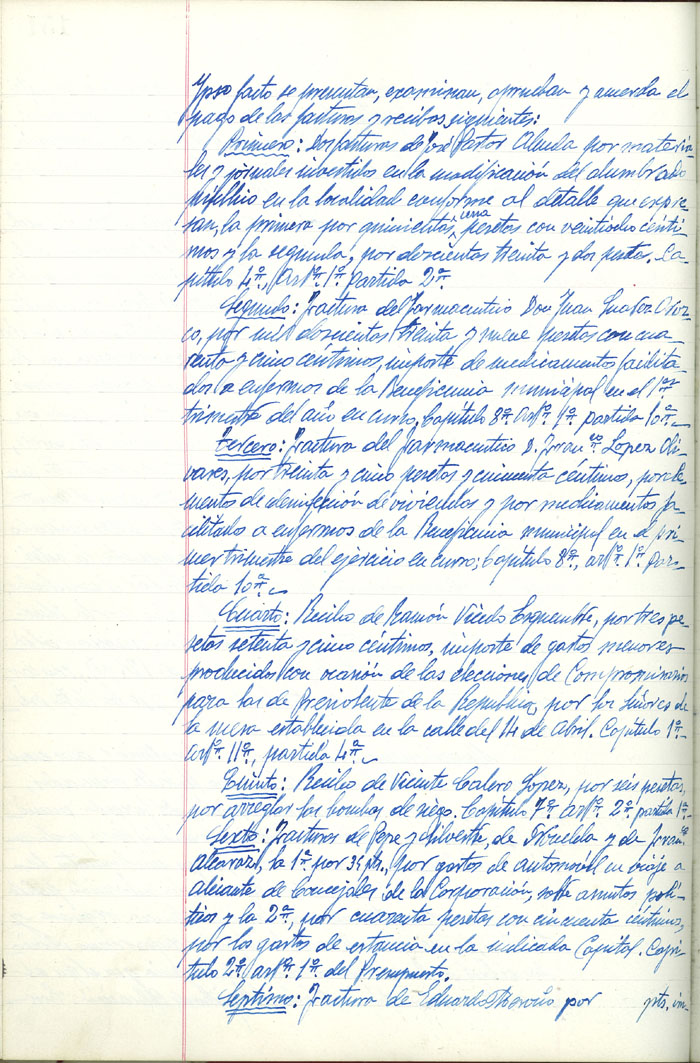 Ypso facto se presentan, examinan, aprueban y acuerda el
pago de las facturas y recibos siguientes:
Primero: Dos facturas de José Pastor Alenda por materia-
les y jornales invertidos en la modificación del alumbrado
público en la localidad conforme al detalle que expre-
san, la primera por quinientas una pesetas con veintiocho cénti-
mos y la segunda, por doscientas treinta y dos pesetas. Ca-
pítulo 4º, Artº. 1º Partida 2ª.
Segundo: Factura del farmaceutico Don Juan
co, por mil doscientas treinta y nueve pesetas con cua-
renta y cinco céntimos, importe de medicamentos facilita-
dos a enfermos de la Beneficencia municipal en el 1er
trimestre del año en curso, Capítulo 8º Artº. 1º partida 10ª.
Tercero: Factura del farmaceutico D. Franco. Lopez Oli-
vares, por treinta y cinco pesetas y cincuenta céntimos, por
de desinfección de viviendas y por medicamentos fa-
cilitado a enfermos de la Beneficencia municipal en el pri-
mer trimestre del ejercicio en curso; Capítulo 8º, artº. 1º Par-
tida 10ª.
Cuarto: Recibo de Ramón Vicedo Esquembre, por tres pe-
setas setenta y cinco céntimos, importe de gastos menores
producidos con ocasión de las elecciones de Compromisarios
para las de Presidente de la Republica, por los señores de
la mesa establecida en la calle del 14 de Abril. Capítulo 1º
artº. 11º, partida 4ª.
Quinto: Recibo de Vicente Calero Lopez, por seis pesetas,
por arreglar las bombas de riego. Capítulo 7º artº. 2º partida 1ª.
Sexto: Facturas de Pepe y Silvestre, de Novelda y de Franco
Alcaraz, la 1ª por 34 pts., por gastos de automovil en viaje a
Alicante de Concejales de la Corporación, sobre asuntos polí-
ticos y la 2ª, por cuarenta pesetas con cincuenta céntimos,
por los gastos de estancia en la indicada Capital. Capí-
tulo 2º artº. 1º del Presupuesto.
Septimo: Factura de Eduardo por pts. im-